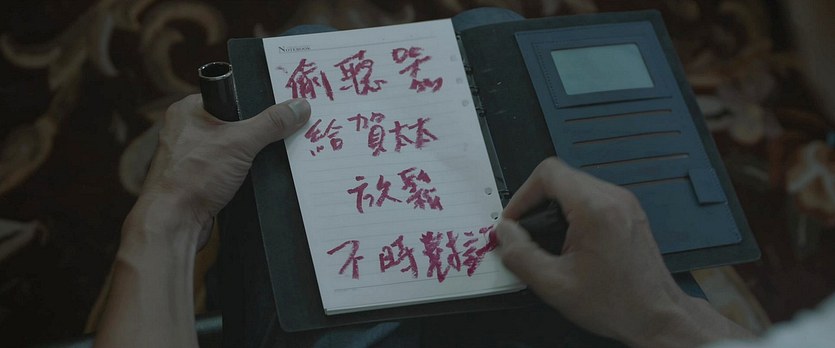 NOTEBOOK
偷聽器
給賀太太
放鬆
不時對話